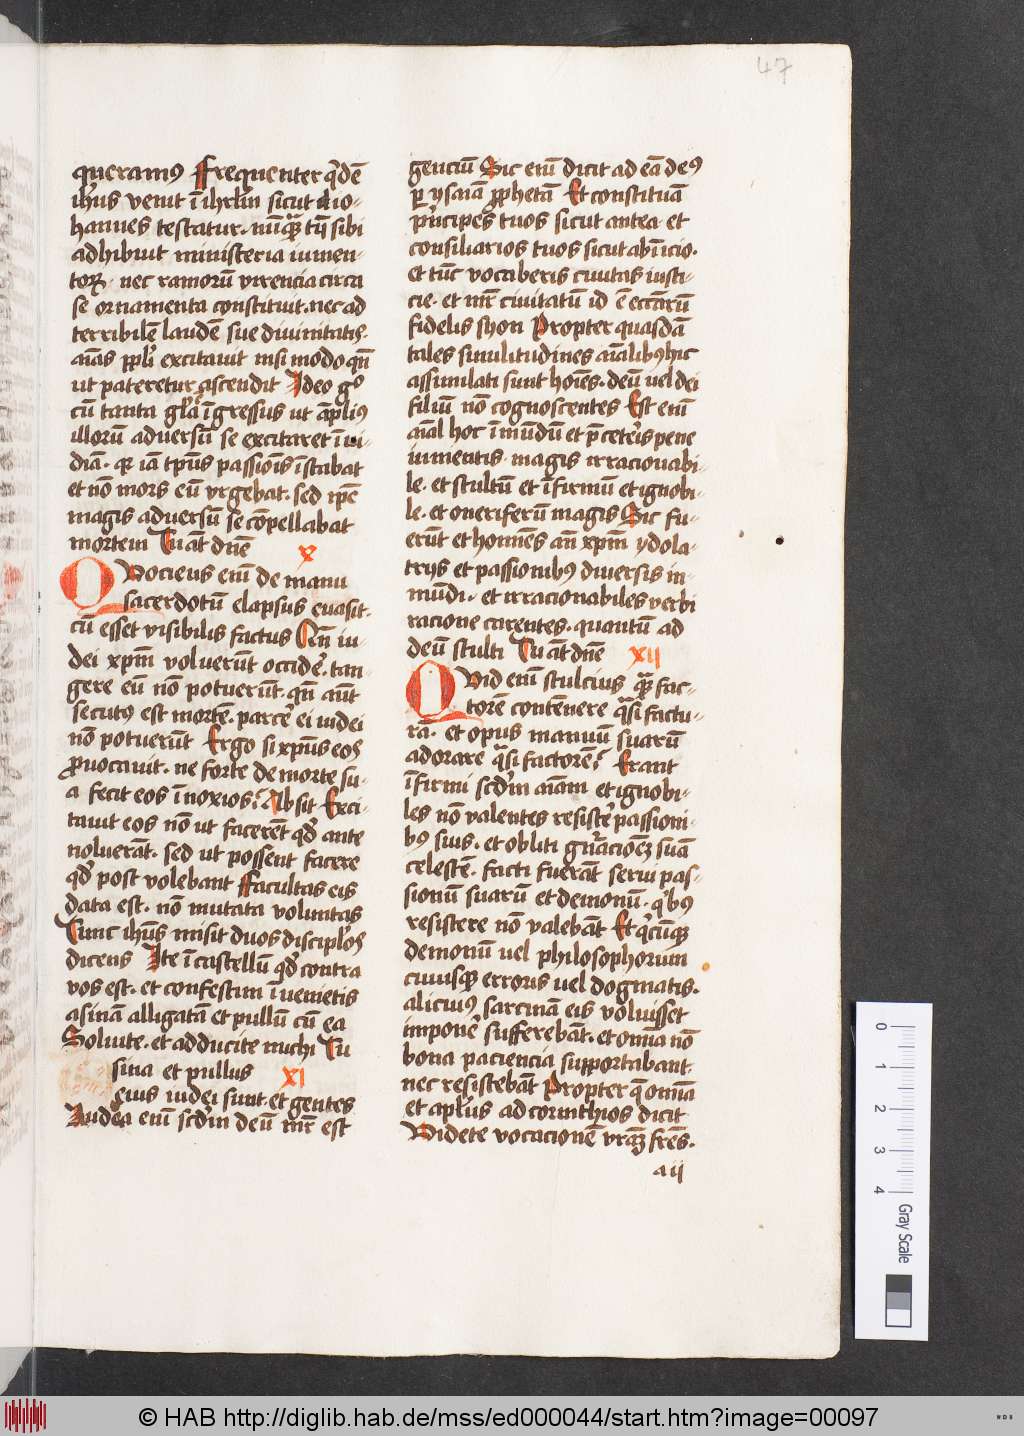 47
queramus Frequenter q̄dē
ih̄us venit ī ihrl̄m sicut Io-
hannes testatur. nūq̄ꝫ tn̄ sibi
adhibuit ministeria iumen-
toꝝ. nec ramorū virencia circa
se ornamenta constituit. nec ad
terribilē laudē sue diuinitatis.
aīas ppl̄i excitauit nisi modo qn̄
ut pateretur ascendit Ideo gͦ
cū tanta gl̄ā īgressus ut āplius
illorū adversū se excitaret īui-
diā. qr iā tp̄us passiōis īstabat
et nō mors eū vrgebat. sed ip̄e
magis adversū se cōpellabat
mortem Tu āt dn̄e
x
QVociens enī de manu
sacerdotū elapsus euasit.
cū esset visibilis factus Nā iu-
dei xp̄m voluerūt occidē. tan-
gere eū nō potuerūt. qn̄ aūt
secutus est mortē. parcē ei iudei
nō potuerūt Ergo si xp̄us eos
ꝓvocavit. ne forte de morte su-
a fecit eos īnoxios? Absit Exci-
tauit eos nō ut facerēt qd̄ ante
noluerāt. sed ut possent facere
qd̄ post volebant Facultas eis
data est. nō mutata voluntas
Tunc ih̄us misit duos discipl̄os
dicens Ite ī castellū qd̄ contra
vos est. et confestim īuenietis
asinā alligatā et pullū cū ea
Soluite. et adducite michi Tu
sina et pullus
xi
eius iudei sunt. et gentes
Iudea enī scd̄m deū mr̄ est
genciū Sic enī dicit ad eā deus
ꝑ ysaiā ꝓphetā Et constituā
pn̄cipes tuos sicut antea et
consiliarios tuos sicut ab īicio.
et tūc vocaberis ciuitas iusti-
cie. et mr̄ ciuitatū id ē eccl̄arū
fidelis syon Propter quasdā
tales similitudines aīalibus hic
assimilati sunt hoīes. deū uel dei
filiū nō cognoscentes Est enī
aīal hoc īmūdū et p̄ ceteris pene
iumentis magis irracionabi-
le. et stultū et īfirmū et ignobi-
le. et oneriferū magis Sic fu-
erūt et homīes an̄ xp̄m ydola-
trijs et passionibus diversis in-
mūdi. et irracionabiles verbi
racione carentes. quantū ad
deū stulti Tu āt dn̄e
xii
QVid enī stulcius qꝫ fac-
torē contēnere q̄si factu-
rā. et opus manuū suarū
adorare q̄si factorē? Erant
īfirmi scd̄m aīam et ignobi-
les nō valentes resistē passioni-
bus suis. et obliti gn̄acioēꝫ suā
celestē. facti fuerāt serui pas-
sionū suarū et demonū. qͥbus
resistere nō valebāt Et qͥcūqꝫ
demoniū uel philosophorum
cuiusqꝫ erroris uel dogmatis.
alicuius sarcinā eis voluisset
imponē sufferebāt. et omīa nō
bona paciencia supportabant.
nec resistebāt Propter q̄ omīa
et apl̄us ad corinthios dicit
Videte vocacionē vrāꝫ fr̄es.
a ii
0
1
2
3
4
Gray Scale
© HAB http://diglib.hab.de/mss/ed000044/start.htm?image=00097